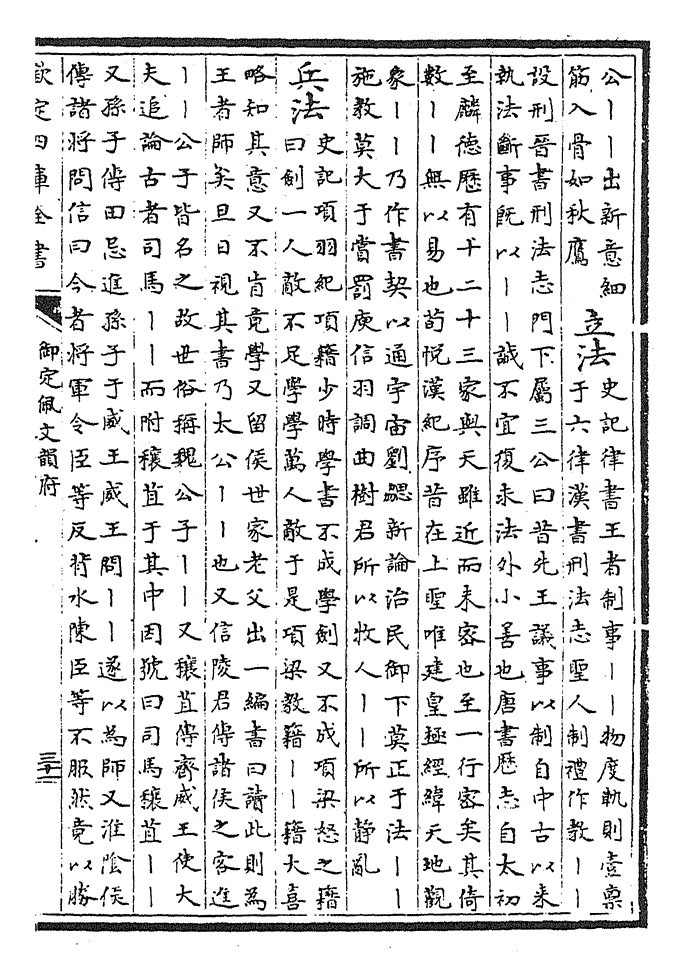 公丨丨出新意細
筋入骨如秋鷹
立法
史記律書王者制事丨丨物度軌則壹禀
于六律漢書刑法志聖人制禮作教丨丨
設刑晉書刑法志門下屬三公曰昔先王議事以制自中古以来
執法斷事既以丨丨誠不宜復求法外小善也唐書歷志自太初
至麟德歷有十二十三家與天雖近而未宻也至一行宻矣其倚
數丨丨無以易也荀悦漢紀序昔在上聖唯建皇極經緯天地觀
象丨丨乃作書契以通宇宙劉勰新論治民御下莫正于法丨丨
施教莫大于賞罰庾信羽調曲樹君所以牧人丨丨所以静亂
兵法
史記項羽紀項籍少時學書不成學劍又不成項梁怒之籍
曰劍一人敵不足學學萬人敵于是項梁教籍丨丨籍大喜
略知其意又不肯竟學又留侯世家老父出一編書曰讀此則為
王者師矣旦日視其書乃太公丨丨也又信陵君傳諸侯之客進
丨丨公子皆名之故世俗稱魏公子丨丨又穰苴傳齊威王使大
夫追論古者司馬丨丨而附穰苴于其中因號曰司馬穰苴丨丨
又孫子傳田忌進孫子于威王威王問丨丨遂以為師又淮陰侯
傳諸將問信曰今者將軍令臣等反背水陳臣等不服然竟以勝
欽定四庫全書
御定佩文韻府